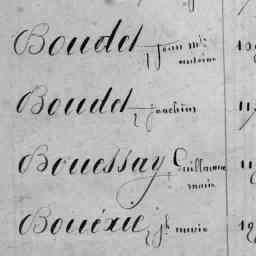 Boudel Jean m.ie
antoine
Boudel joachim
Bouessay Guillaume
marie
Bouëxic j.h marie